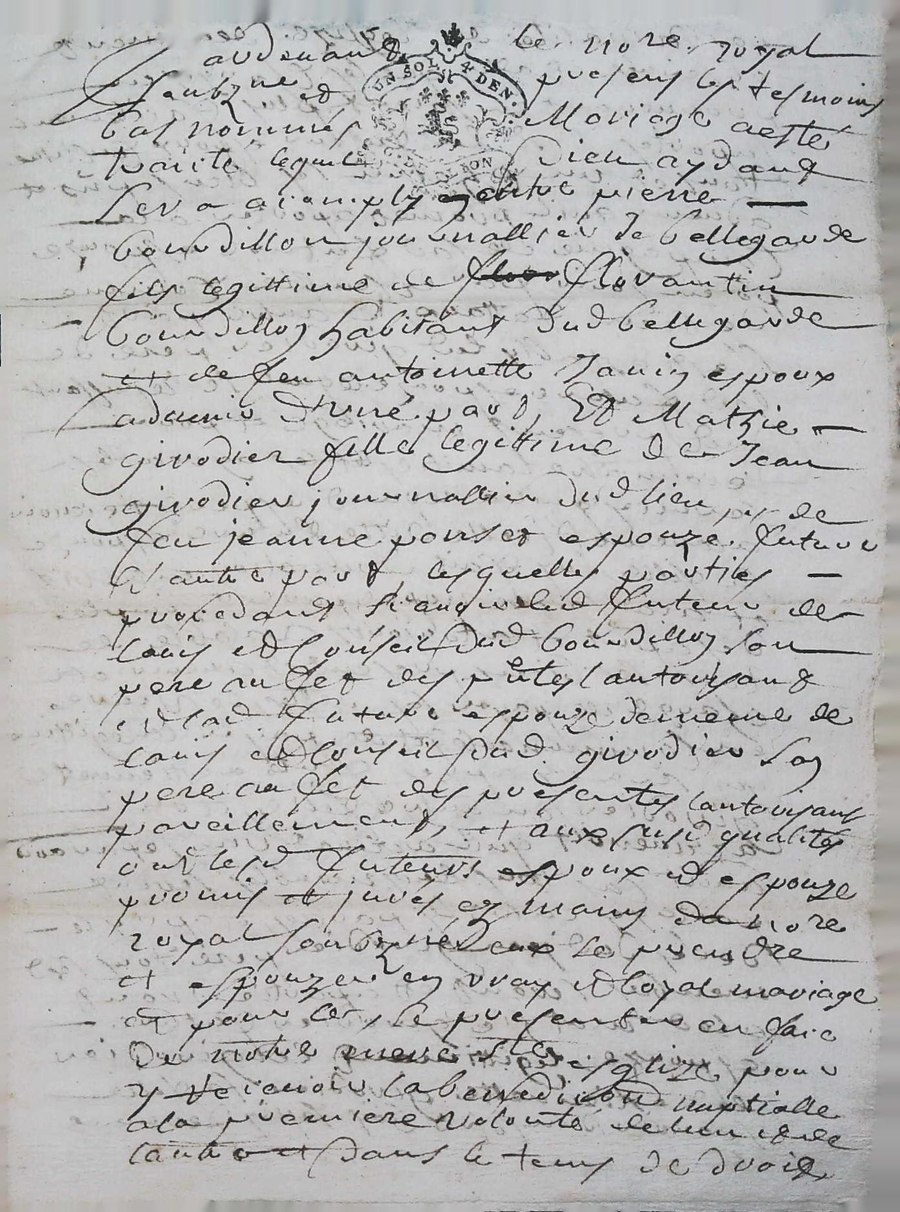 Pardevant le no.re royal
soubz.né et presens les tesmoins
bas nommés Mariage a esté
UN SOL 4 DEN.
traicté lequel Dieu aydant
sera acomply entre pierre
bourdillon journallier de bellegarde
fils legittime de florantin
bourdillon habitant dud bellegarde
et de feu antoinette Janin espoux
advenir d'vne part, Et Mathie
girodier fille legittime de Jean
girodier journallier dud lieu, et de
feu jeanne ponset espouze future
d'autre part, lesquelles parties
procedans scavoir led futeur de
lavis et Conseil dud bourdillon son
pere au fet des p^ntes lautorisant
et lad. future espouze de meme de
lavis et Conseil dud. girodier son
pere au fet des presentes lautorisant
pareillement, et aux susd qualités
ont lesd futeurs espoux et espouze
promis et jurés ez mains du no.re
royal soubzné eux se prendre
et espouzer en vray et loyal mariage
et pour ce, se presenter en face
De notre mere S.te esglize pour
y recevoir la benediction nuptialle
a la premiere volonté de lun et de
lautre et dans le temps de droit